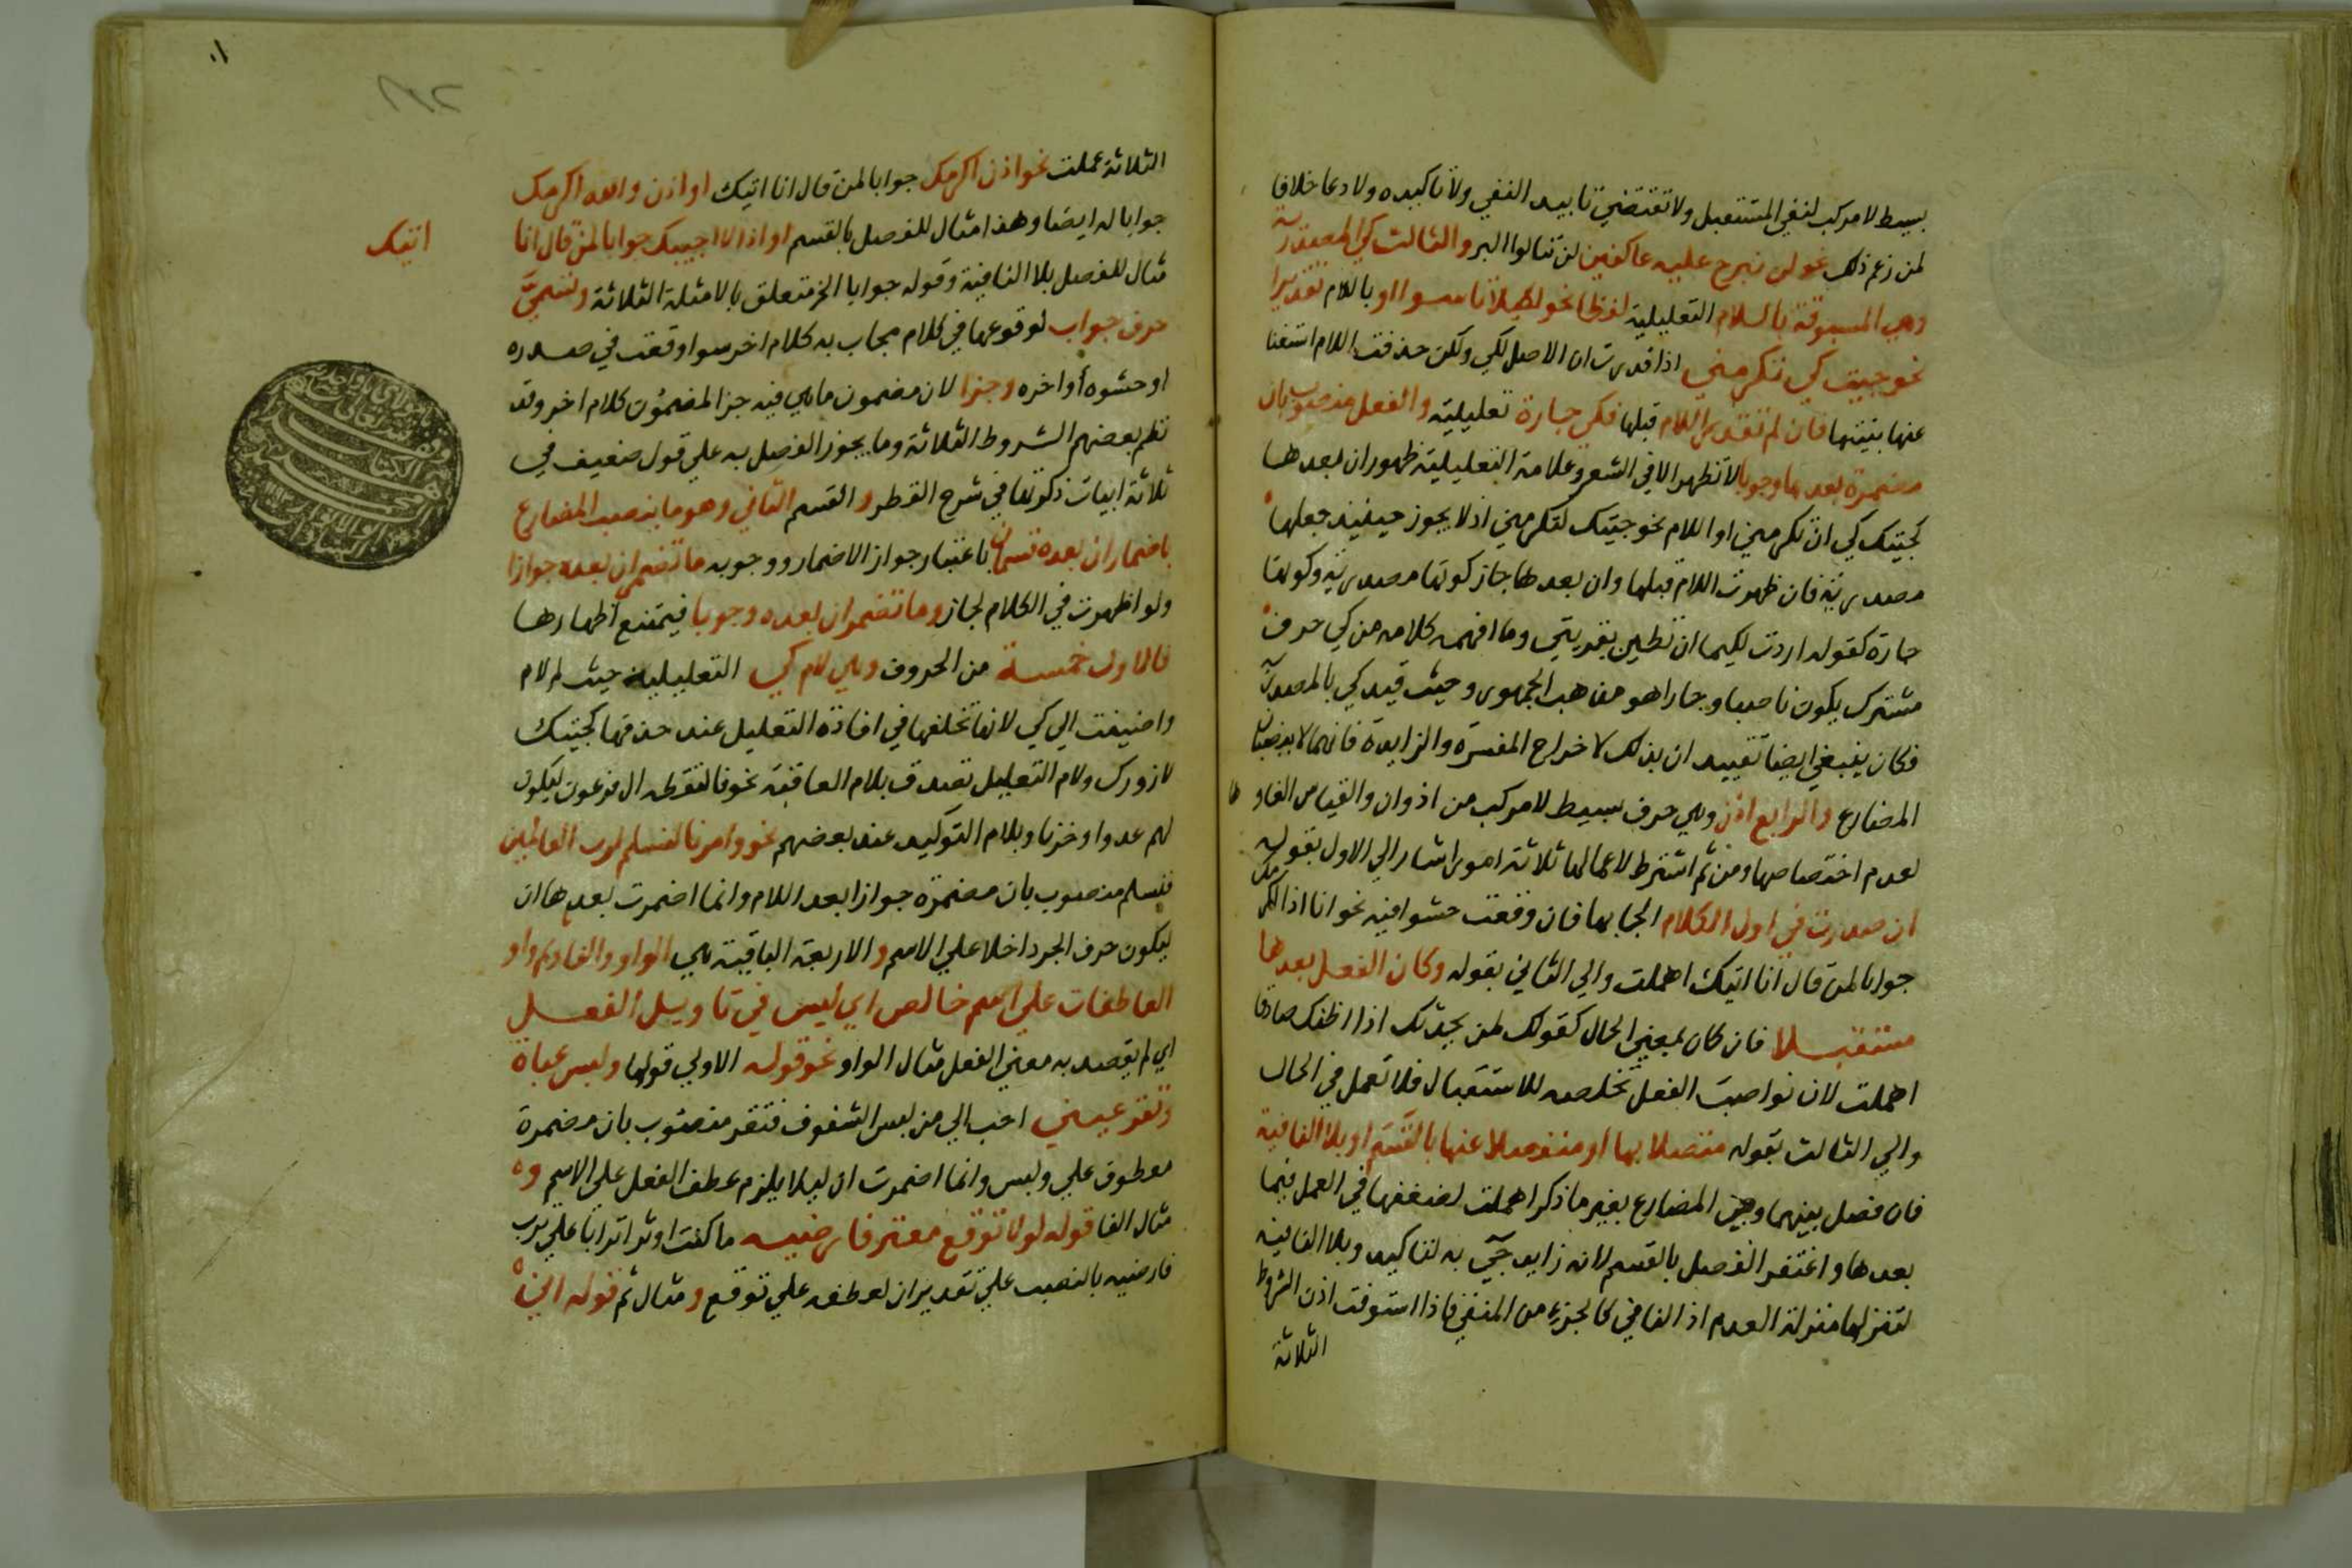 بسيط لا مركب لنفي المستقبل ولا تقتضي تابيد النفي ولا تاكيده ولا دعا خلافا
لمن زعم ذلك نحو لن نبرح عليه عاكفين لن تنالوا البر والثالث كي المصدرية
وهي المسبوقة باللام التعليلية لفظا نحو لكيلا تاسوا او باللام تقديرا
نحو جيتك كي تكرمني اذا قدرت ان الاصل لكي ولكن حذفت اللام استغنا
عنها بنيتها فان لم تقدر اللام قبلها فكي جارة تعليلية والفعل منصوب بان
مضمرة بعدها وجوبا لا تظهر الا في الشعر وعلامة التعليلية ظهور ان بعدها
كجيتك كي ان تكرمني او اللام نحو جيتك لتكرمني اذ لا يجوز حينيذ جعلها
مصدرية فان ظهرت اللام قبلها وان بعدها جاز كونها مصدرية وكونها
جارة كقوله اردت لكيما ان تطير بقربتي وما افهمه كلامه من كي حرف
مشترك يكون ناصبا وجارا هو مذهب الجمهور وحيث قيد كي بالمصدرية
فكان ينبغي ايضا تقييد ان بذلك لاخراج المفسرة والزايدة فانهما لا ينصبان
المضارع والرابع اذن وهي حرف بسيط لا مركب من اذ وان والقياس الغاوها
لعدم اختصاصها ومن ثم اشترط لاعمالها ثلاثة امور اشار الي الاول بقوله
ان صدرت في اول الكلام المجاب بها فان وقعت حشوا فيه نحو انا اذا اكرمك
جوابا لمن قال انا اتيك اهملت والي الثاني بقوله وكان الفعل بعدها
مستقبلا فان كان بمعني الحال كقولك لمن يحدثك اذا اظنك صادقا
اهملت لان نواصب الفعل تخلصه للاستقبال فلا تعمل في الحال
والي الثالث بقوله متصلا بها او منفصلا عنها بالقسم او بلا النافية
فان فصل بينهما وبين المضارع بغير ما ذكر اهملت لضعفها في العمل فيما
بعدها واغتفر الفصل بالقسم لانه زايد جيٓ به للتاكيد وبلا النافية
لتنزلها منزلة العدم اذ النافي كالجزء من المنفي فاذا استوفت اذن الشروط
الثلاثة
الثلاثة عملت نحو اذن اكرمك جوابا لمن قال انا اتيك او اذن والله اكرمك
جوابا له ايضا وهذا مثال للفصل بالقسم او اذا لا اجيبك جوابا لمن قال انا
اتيك
مثال للفصل بلا النافية وقوله جوابا الخ متعلق بالامثلة الثلاثة وتسمي
حرف جواب لوقوعها في كلام مجاب به كلام اخر سوا وقعت في صدره
او حشوه أو اخره وجزا لان مضمون ما هي فيه جزا لمضمون كلام اخر وقد
نظم بعضهم الشروط الثلاثة وما يجوز الفصل به علي قول ضعيف في
ثلاثة ابيات ذكرتها في شرح القطر والقسم الثاني وهو ما ينصب المضارع
باضمار ان بعده قسمان باعتبار جواز الاضمار ووجوبه ما تضمر ان بعده جوازا
ولو اظهرت في الكلام لجاز وما تضمر ان بعده وجوبا فيمتنع اظهارها
فالاول خمسة من الحروف وهي لام كي التعليلية حيث لم لام
واضيفت الي كي لانها تخلفها في افادة التعليل عند حذفها كجيتك
لازورك ولام التعليل تصدق بلام العاقبة نحو فالتقطه ال فرعون ليكون
لهم عدوا وحزنا وبلام التوكيد عند بعضهم نحو وامرنا لنسلم لرب العالمين
فنسلم منصوب بان مضمرة جوازا بعد اللام وانما اضمرت بعدها ان
ليكون حرف الجر داخلا علي الاسم والاربعة الباقية هي الواو والفا وثم واو
العاطفات علي اسم خالص اي ليس في تاويل الفعل
اي لم يقصد به معني الفعل مثال الواو نحو قوله الاولي قولها ولبس عباة
وتقر عيني احب الي من لبس الشفوف فتقر منصوب بان مضمرة
معطوف علي ولبس وانما اضمرت ان ليلا يلزم عطف الفعل علي الاسم و
مثال الفا قوله لولا توقع معتر فارضيه ما كنت اوثر اترابا علي ترب
فارضيه بالنصب علي تقدير ان لعطفه علي توقع ومثال ثم قوله اني